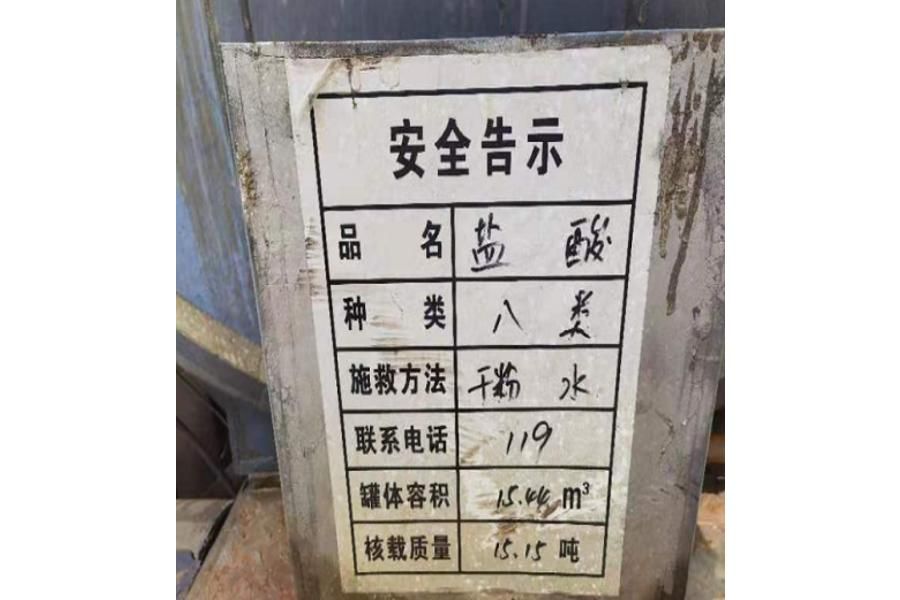 安全告示
品名 盐酸
种类 八类
施救方法 干粉 水
联系电话 119
罐体容积 15.44 m³
核载质量 15.15 吨